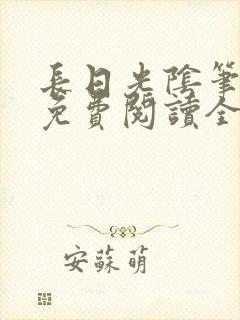 長日光陰筆
免費閱讀全
安蘇萌